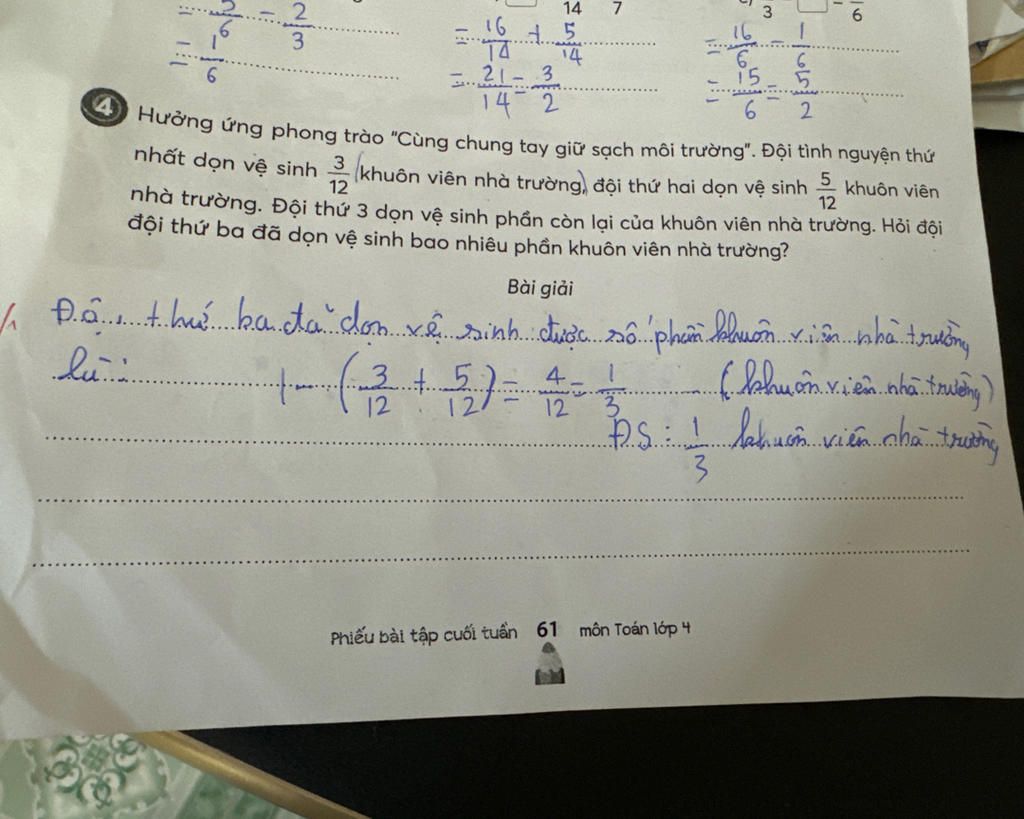 14 7 3 6
= 5/6 - 2/3 = 16/14 + 5/14 = 16/6 - 1/6
= 1/6 = 21/14 = 3/2 = 15/6 = 5/2
4 Hưởng ứng phong trào "Cùng chung tay giữ sạch môi trường". Đội tình nguyện thứ
nhất dọn vệ sinh 3/12 (khuôn viên nhà trường), đội thứ hai dọn vệ sinh 5/12 khuôn viên
nhà trường. Đội thứ 3 dọn vệ sinh phần còn lại của khuôn viên nhà trường. Hỏi đội
đội thứ ba đã dọn vệ sinh bao nhiêu phần khuôn viên nhà trường?
Bài giải
Đội thứ ba đã dọn vệ sinh được số phần khuôn viên nhà trường
là:
1 - (3/12 + 5/12) = 4/12 = 1/3 (khuôn viên nhà trường)
ĐS: 1/3 khuôn viên nhà trường
Phiếu bài tập cuối tuần 61 môn Toán lớp 4